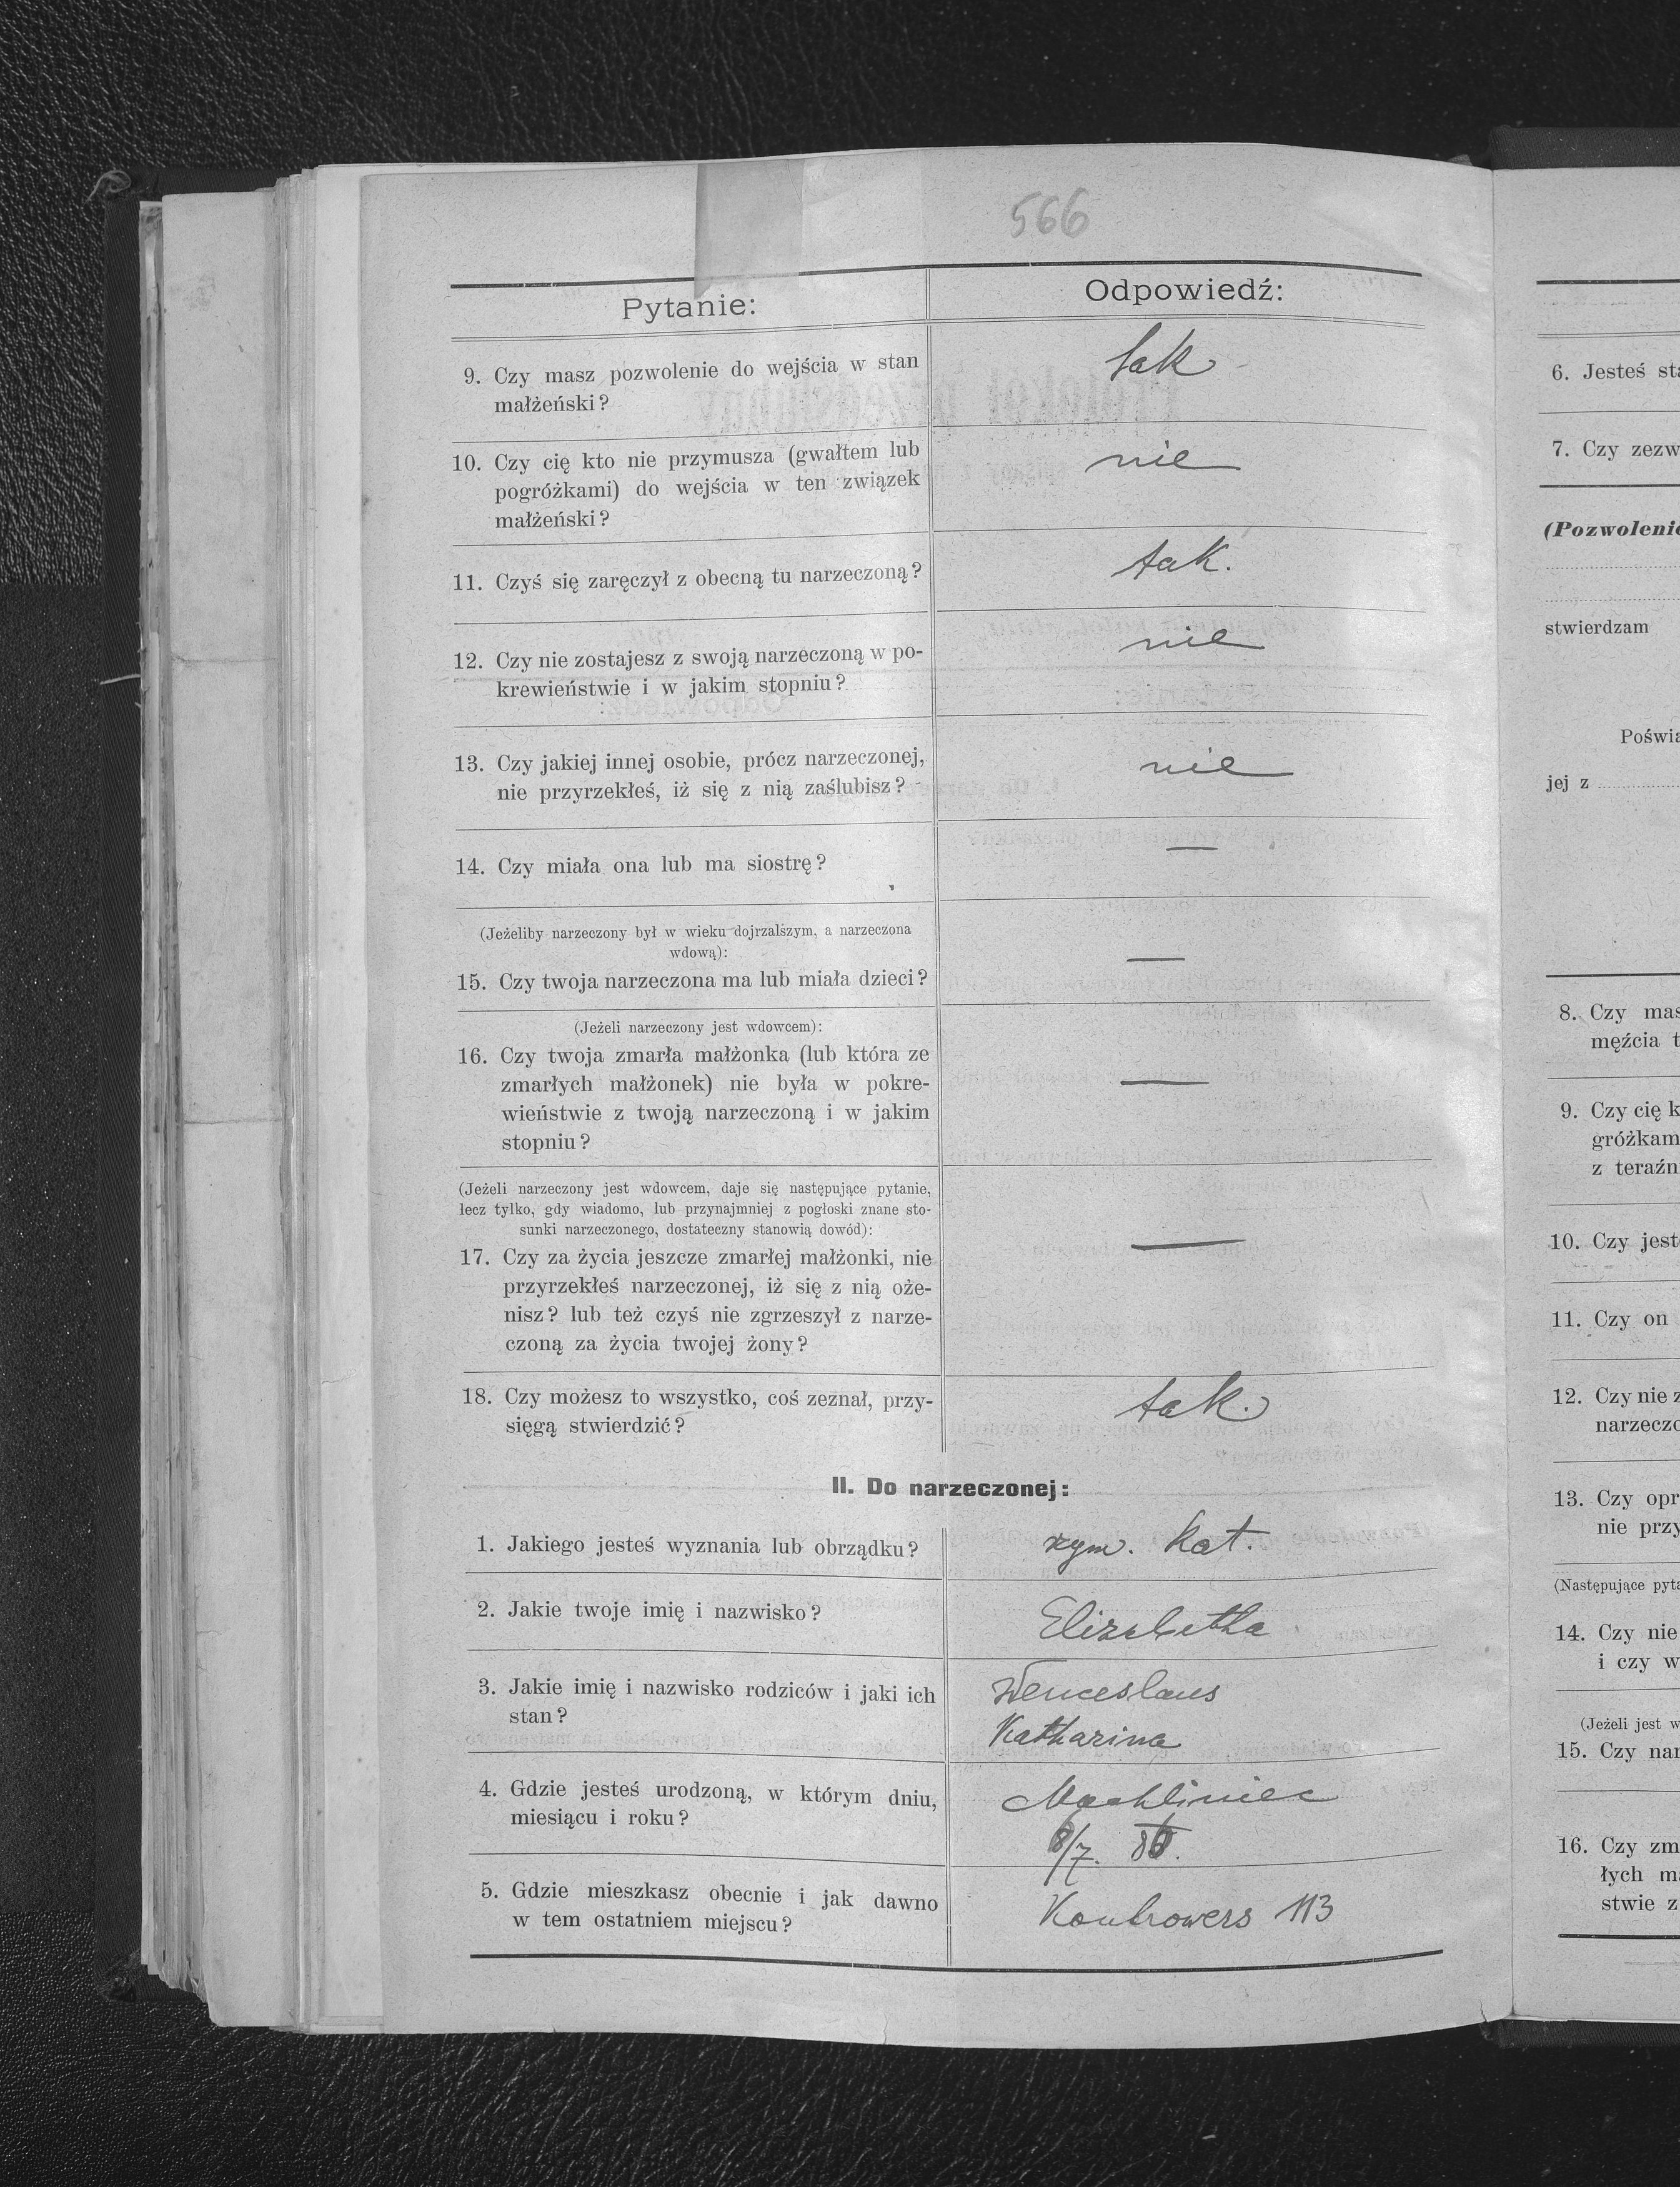 566
Pytanie:
Odpowiedź:
9. Czy masz pozwolenie do wejścia w stan
małżeński?
tak
10. Czy cię kto nie przymusza (gwałtem lub
pogróżkami) do wejścia w ten związek
małżeński?
nie
11. Czyś się zaręczył z obecną tu narzeczoną?
tak.
12. Czy nie zostajesz z swoją narzeczoną w po-
krewieństwie i w jakim stopniu?
nie
13. Czy jakiej innej osobie, prócz narzeczonej,
nie przyrzekłeś, iż się z nią zaślubisz?
nie
14. Czy miała ona lub ma siostrę?
—
(Jeżeliby narzeczony był w wieku dojrzalszym, a narzeczona
wdową):
15. Czy twoja narzeczona ma lub miała dzieci?
—
(Jeżeli narzeczony jest wdowcem):
16. Czy twoja zmarła małżonka (lub która ze
zmarłych małżonek) nie była w pokre-
wieństwie z twoją narzeczoną i w jakim
stopniu?
—
(Jeżeli narzeczony jest wdowcem, daje się następujące pytanie,
lecz tylko, gdy wiadomo, lub przynajmniej z pogłoski znane sto-
sunki narzeczonego, dostateczny stanowią dowód):
17. Czy za życia jeszcze zmarłej małżonki, nie
przyrzekłeś narzeczonej, iż się z nią oże-
nisz? lub też czyś nie zgrzeszył z narze-
czoną za życia twojej żony?
—
18. Czy możesz to wszystko, coś zeznał, przy-
sięgą stwierdzić?
tak.
II. Do narzeczonej:
1. Jakiego jesteś wyznania lub obrządku?
rym. kat.
2. Jakie twoje imię i nazwisko?
Elizabetha
3. Jakie imię i nazwisko rodziców i jaki ich
stan?
Wenceslaus
Katharina
4. Gdzie jesteś urodzoną, w którym dniu,
miesiącu i roku?
Machliniec
8/7.
5. Gdzie mieszkasz obecnie i jak dawno
w tem ostatniem miejscu?
113
6. Jesteś
7. Czy
(Pozwolenie
stwierdzam
jej z
8. Czy
mężcia
9. Czy cię
z
10. Czy
11. Czy on
12. Czy nie z
13. Czy
nie
(Następujące
14. Czy nie
i czy w
(Jeżeli jest
15. Czy
16. Czy
łych
stwie z